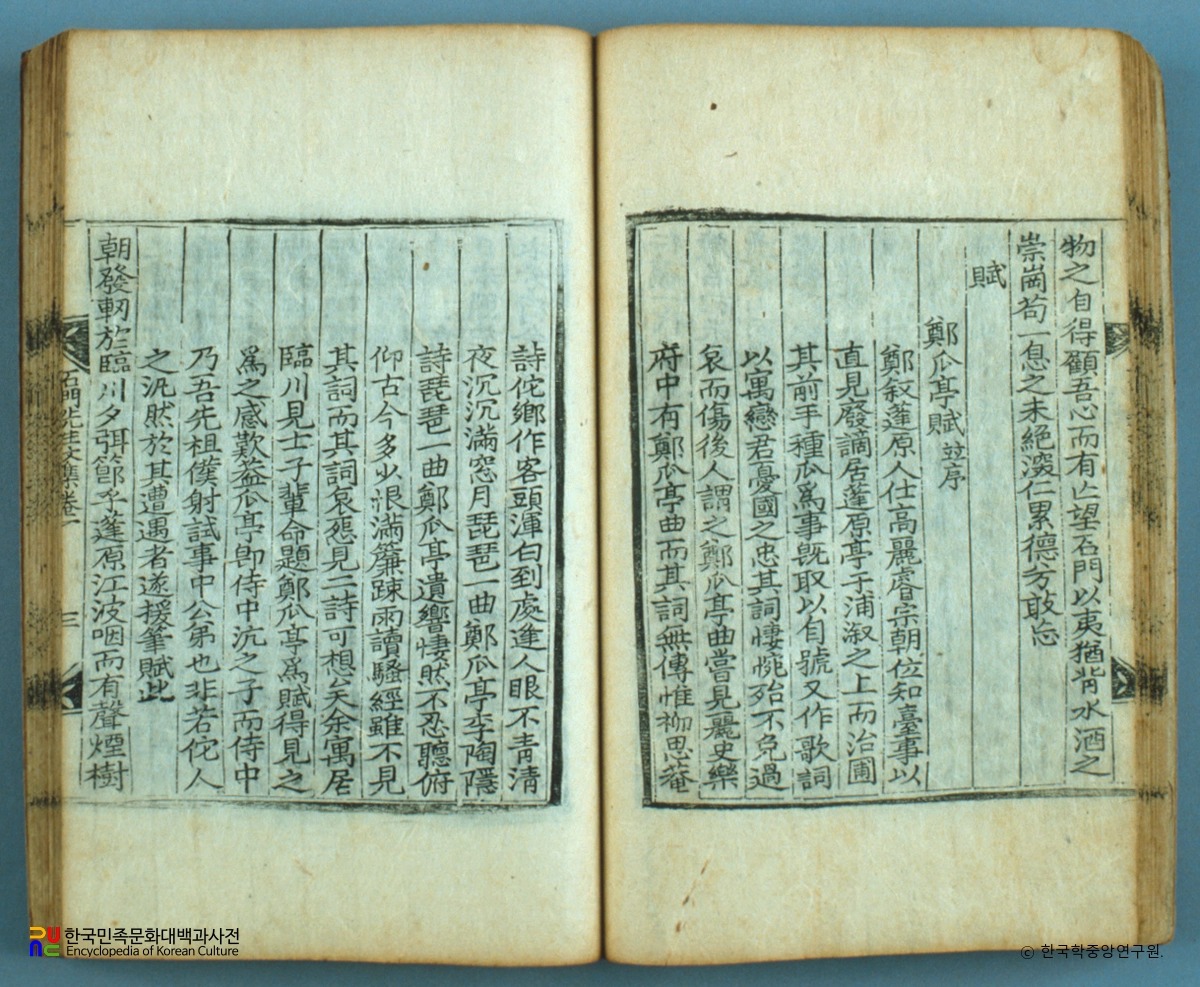 物之自得顧吾心而有亡望石門以夷猶背水洒之
崇崗苟一息之未絶深仁累德方敢忘
賦
鄭瓜亭賦 並序
鄭叙蓬原人仕高麗睿宗朝位知臺事以
直見廢謫居蓬原亭于浦溆之上而治圃
其前手種瓜爲事旣取以自號又作歌詞
以寓戀君憂國之忠其詞悽惋殆不免過
哀而傷後人謂之鄭瓜亭曲嘗見麗史樂
府中有鄭瓜亭曲而其詞無傳惟柳思菴
詩佗鄕作客頭渾白到處逢人眼不靑清
夜沉沉滿窓月琵琶一曲鄭瓜亭李陶隱
詩琵琶一曲鄭瓜亭遺響悽然不忍聽俯
仰古今多少恨滿簾踈雨讀騷經雖不見
其詞而其詞哀怨見二詩可想矣余寓居
臨川見士子輩命題鄭瓜亭爲賦得見之
爲之感歎盖瓜亭卽侍中沆之子而侍中
乃吾先祖僕射試事中公弟也非若佗人
之汎然於其遭遇者遂援筆賦此
朝發軔於臨川夕弭節乎蓬原江波咽而有聲煙樹
石門先生文集卷一
三
한국민족문화대백과사전
Encyclopedia of Korean Culture
© 한국학중앙연구원.